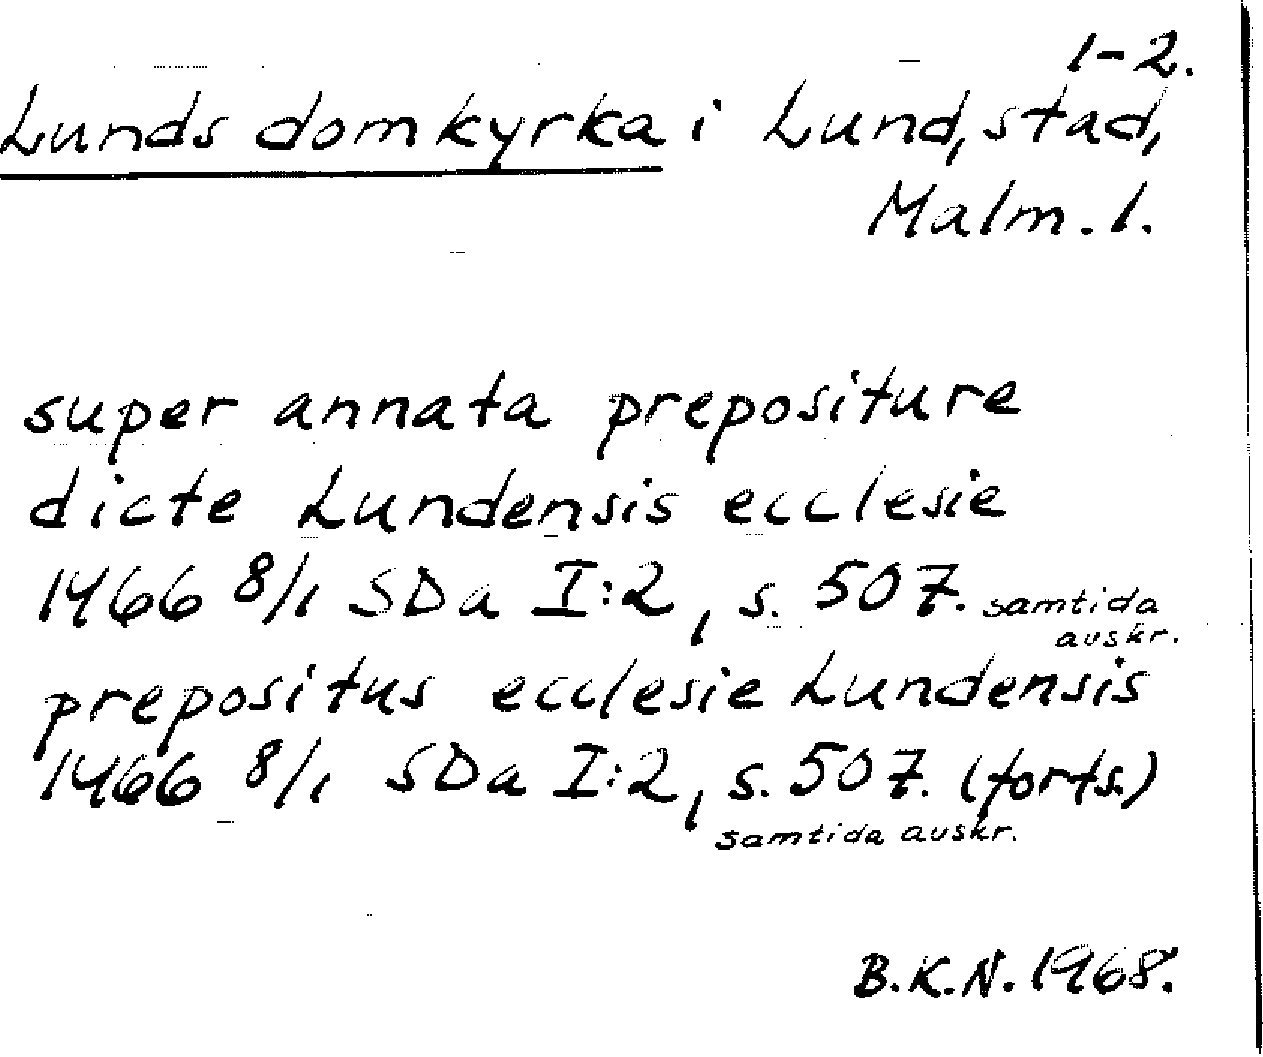 1-2.
Lunds domkyrka i Lund, stad,
Malm. l.
super annata prepositure
dicte Lundensis ecclesie
1466 8/1 SDa I:2, s. 507. samtida
avskr.
prepositus ecclesie Lundensis
1466 8/1 SDa I:2, s. 507. (forts.)
samtida avskr.
B.K.N. 1968.